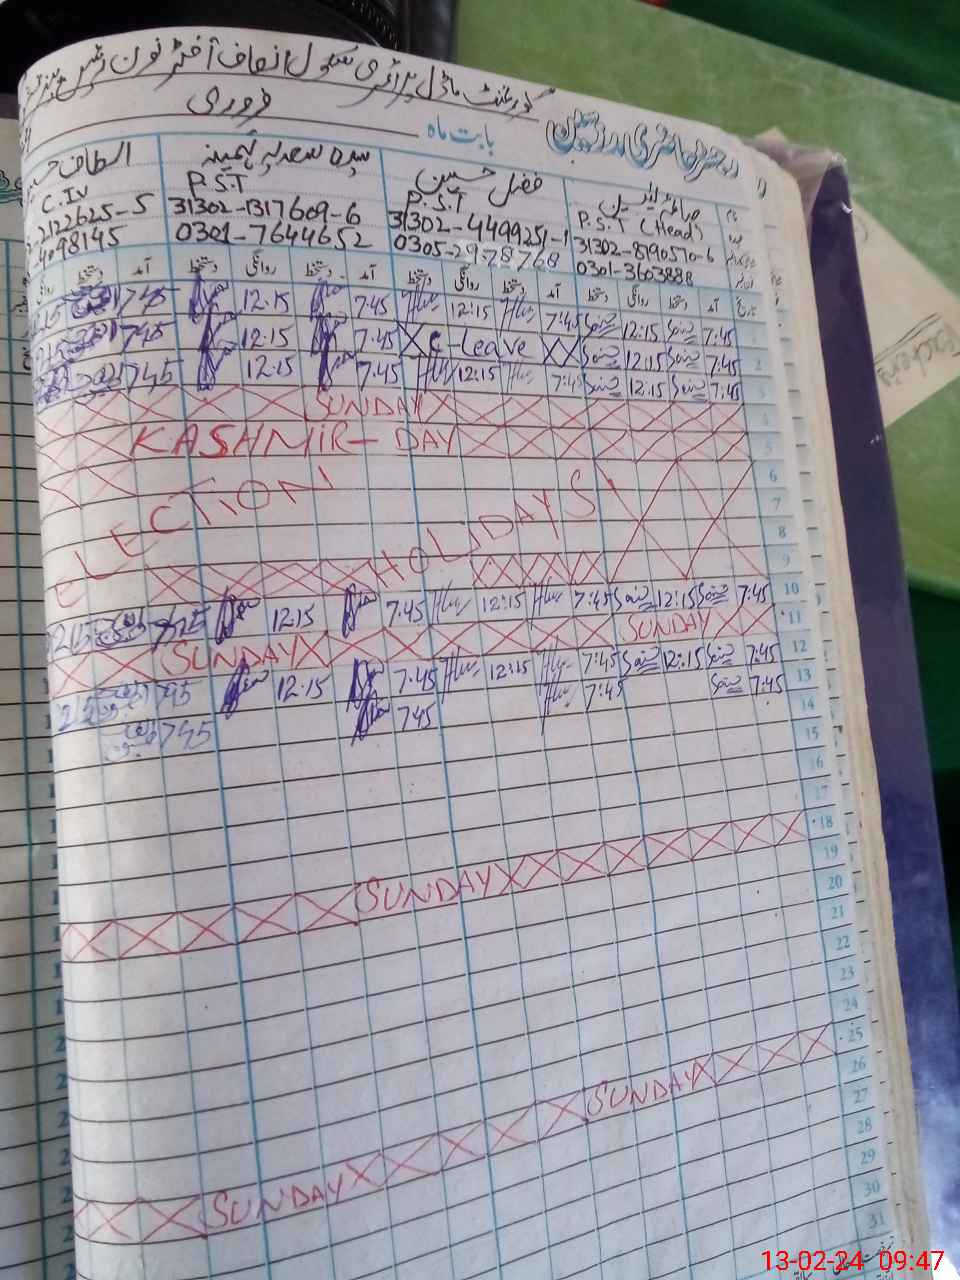 گورنمنٹ ماڈل پرائمری سکول انصاف آفٹر نون
رجسٹر حاضری مدرسین
بابت ماہ فروری
P.S.T (Head)
31302-8190570-6
0301-3603888
فضل حسین
P.S.T
31302-4499251-1
0305-2978768
سیدہ سعدیہ
P.S.T
31302-1317609-6
0301-7644652
الطاف
C.IV
2122625-5
4098145
تاریخ آمد دستخط روانگی دستخط آمد دستخط روانگی دستخط آمد دستخط روانگی دستخط آمد دستخط روانگی
7:45 12:15 7:45 12:15 7:45 12:15 745
2 7:45 12:15 XX C-Leave X 7:45 12:15 745
3 7:45 12:15 7:45 12:15 7:45 12:15 745
4 SUNDAY
5 KASHMIR-DAY
6
7
8
9
ELECTION HOLIDAYS
10 7:45 12:15 7:45 12:15 7:45 12:15 745
11 SUNDAY SUNDAY
12 7:45 12:15 7:45 12:15 7:45 12:15 745
13 7:45 7:45 745 745
14
15
16
17
18 SUNDAY
19
20
21
22
23
24
25 SUNDAY SUNDAY
26
27
28
29
30
31
Teachers
13-02-24 09:47